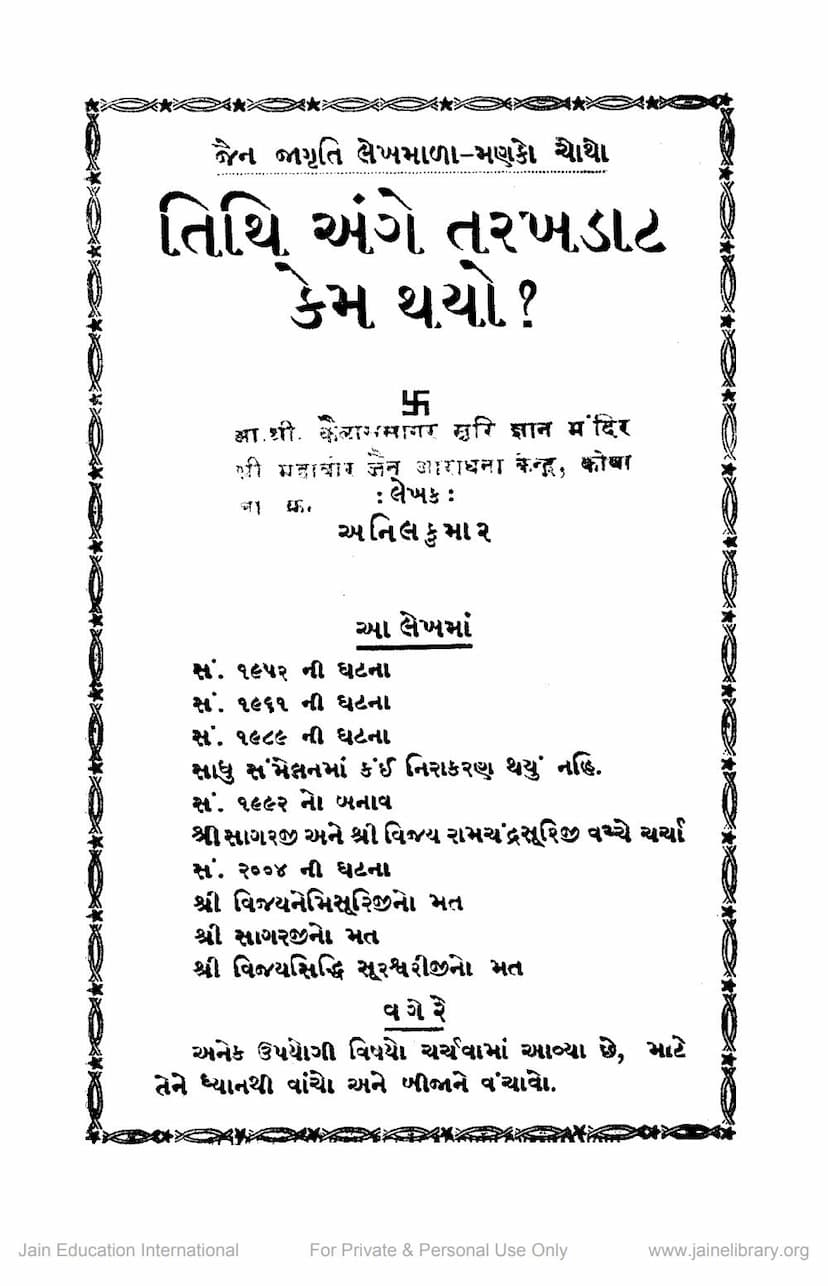 જૈન જાગૃતિ લેખમાળા-મણકો ચોથો
તિથિ અંગે તરખડાટ
કેમ થયો?
卐
आ.श्री. कैलाससागर सूरि ज्ञान मंदिर
श्री महावीर जैन आराधना केन्द्र, कोबा
: લેખક :
ना क्र.
અનિલકુમાર
આ લેખમાં
સં. ૧૯૫૨ ની ઘટના
સં. ૧૯૬૧ ની ઘટના
સં. ૧૯૮૯ ની ઘટના
સાધુ સંમેલનમાં કંઈ નિરાકરણ થયું નહિ.
સં. ૧૯૯૨ નો બનાવ
શ્રી સાગરજી અને શ્રી વિજય રામચંદ્રસૂરિજી વચ્ચે ચર્ચા
સં. ૨૦૦૪ ની ઘટના
શ્રી વિજયનેમિસૂરિજીનો મત
શ્રી સાગરજીનો મત
શ્રી વિજયસિદ્ધિ સૂરશ્વરીજીનો મત
વગેરે
અનેક ઉપયોગી વિષયો ચર્ચવામાં આવ્યા છે, માટે
તેને ધ્યાનથી વાંચો અને બીજાને વંચાવો.
Jain Education International For Private & Personal Use Only www.jainelibrary.org